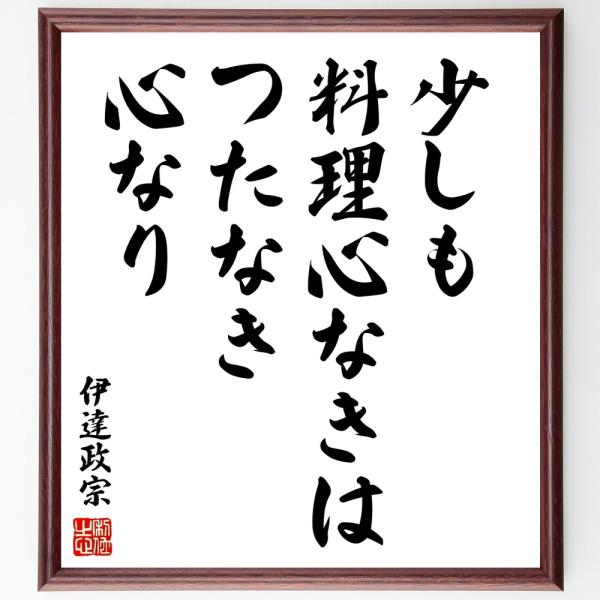 少しも
料理心なきは
つたなき
心なり
伊達政宗